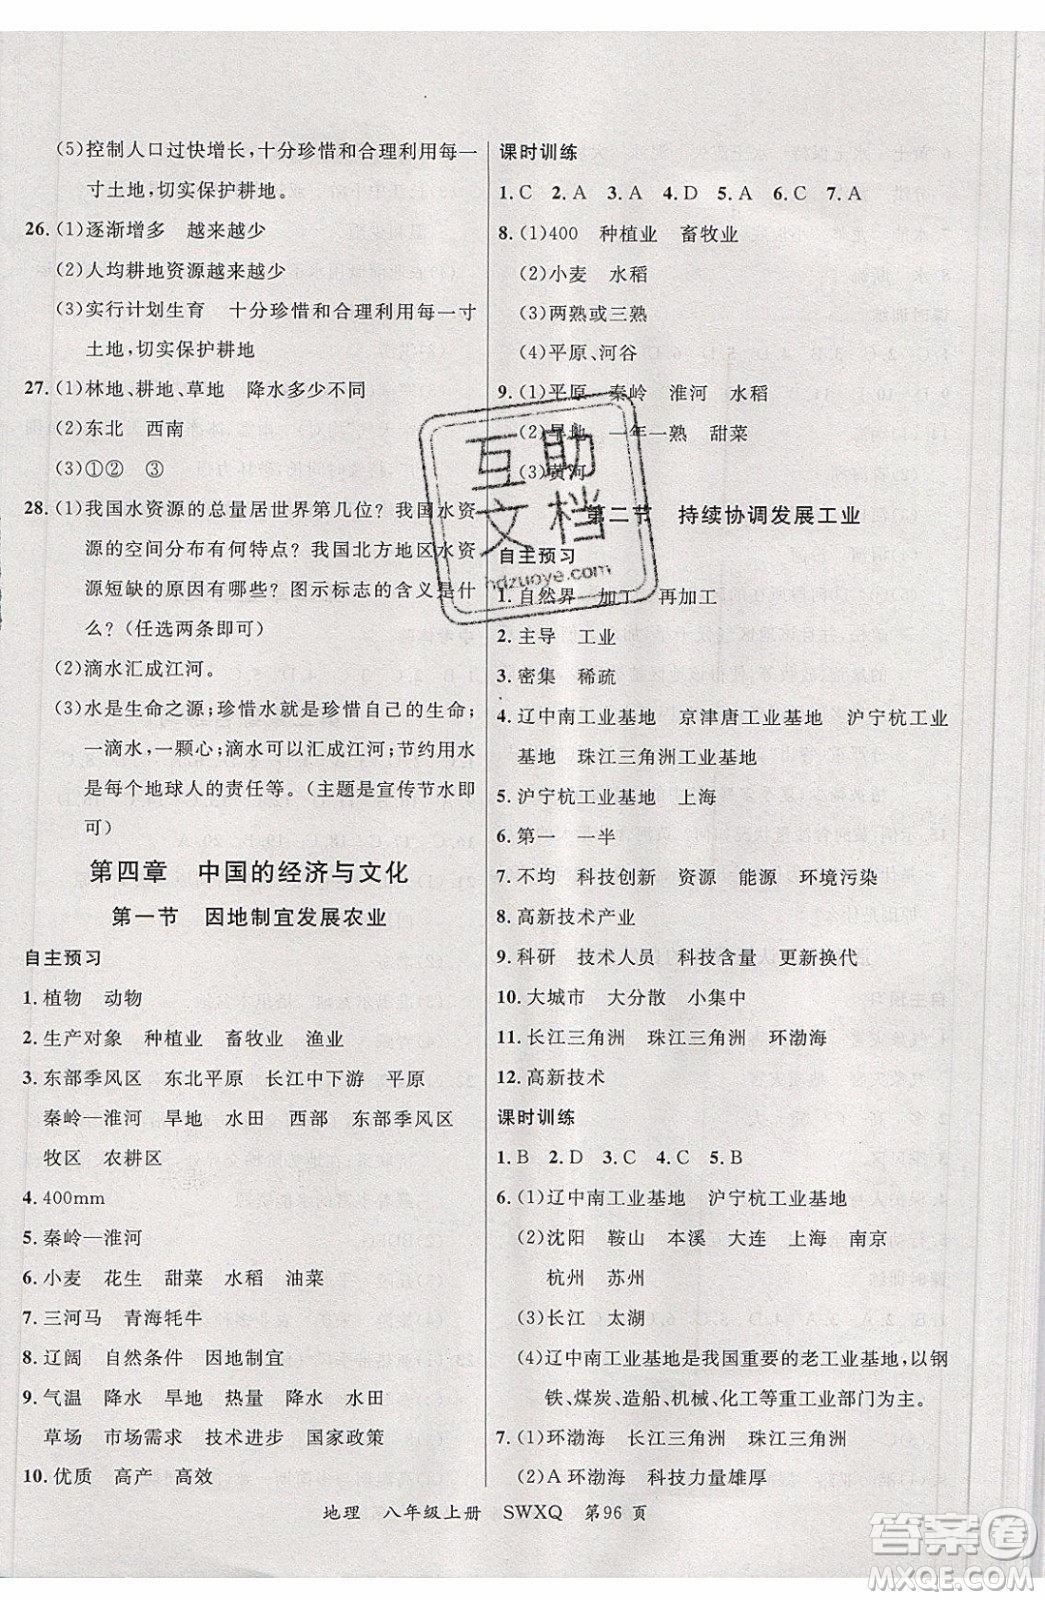 (5)控制人口过快增长,十分珍惜和合理利用每一
寸土地,切实保护耕地。
26.(1)逐渐增多 越来越少
(2)人均耕地资源越来越少
(3)实行计划生育 十分珍惜和合理利用每一寸
土地,切实保护耕地
27.(1)林地、耕地、草地 降水多少不同
(2)东北 西南
(3)①② ③
28.(1)我国水资源的总量居世界第几位?我国水资
源的空间分布有何特点?我国北方地区水资
源短缺的原因有哪些?图示标志的含义是什
么?(任选两条即可)
(2)滴水汇成江河。
(3)水是生命之源;珍惜水就是珍惜自己的生命;
一滴水,一颗心;滴水可以汇成江河;节约用水
是每个地球人的责任等。(主题是宣传节水即
可)
第四章 中国的经济与文化
第一节 因地制宜发展农业
自主预习
1.植物 动物
2.生产对象 种植业 畜牧业 渔业
3.东部季风区 东北平原 长江中下游 平原
秦岭—淮河 旱地 水田 西部 东部季风区
牧区 农耕区
4.400mm
5.秦岭—淮河
6.小麦 花生 甜菜 水稻 油菜
7.三河马 青海牦牛
8.辽阔 自然条件 因地制宜
9.气温 降水 旱地 热量 降水 水田
草场 市场需求 技术进步 国家政策
10.优质 高产 高效
课时训练
1.C 2.A 3.A 4.D 5.A 6.C 7.A
8.(1)400 种植业 畜牧业
(2)小麦 水稻
(3)两熟或三熟
(4)平原、河谷
9.(1)平原 秦岭 淮河 水稻
(2)旱地 一年一熟 甜菜
(3)黄河
第二节 持续协调发展工业
自主预习
1.自然界 加工 再加工
2.主导 工业
3.密集 稀疏
4.辽中南工业基地 京津唐工业基地 沪宁杭工业
基地 珠江三角洲工业基地
5.沪宁杭工业基地 上海
6.第一 一半
7.不均 科技创新 资源 能源 环境污染
8.高新技术产业
9.科研 技术人员 科技含量 更新换代
10.大城市 大分散 小集中
11.长江三角洲 珠江三角洲 环渤海
12.高新技术
课时训练
1.B 2.D 3.C 4.C 5.B
6.(1)辽中南工业基地 沪宁杭工业基地
(2)沈阳 鞍山 本溪 大连 上海 南京
杭州 苏州
(3)长江 太湖
(4)辽中南工业基地是我国重要的老工业基地,以钢
铁、煤炭、造船、机械、化工等重工业部门为主。
7.(1)环渤海 长江三角洲 珠江三角洲
(2)A 环渤海 科技力量雄厚
地理 八年级上册 SWXQ 第96页
互助
文档
hdzuoye.com
答案圈
MXQE.COM